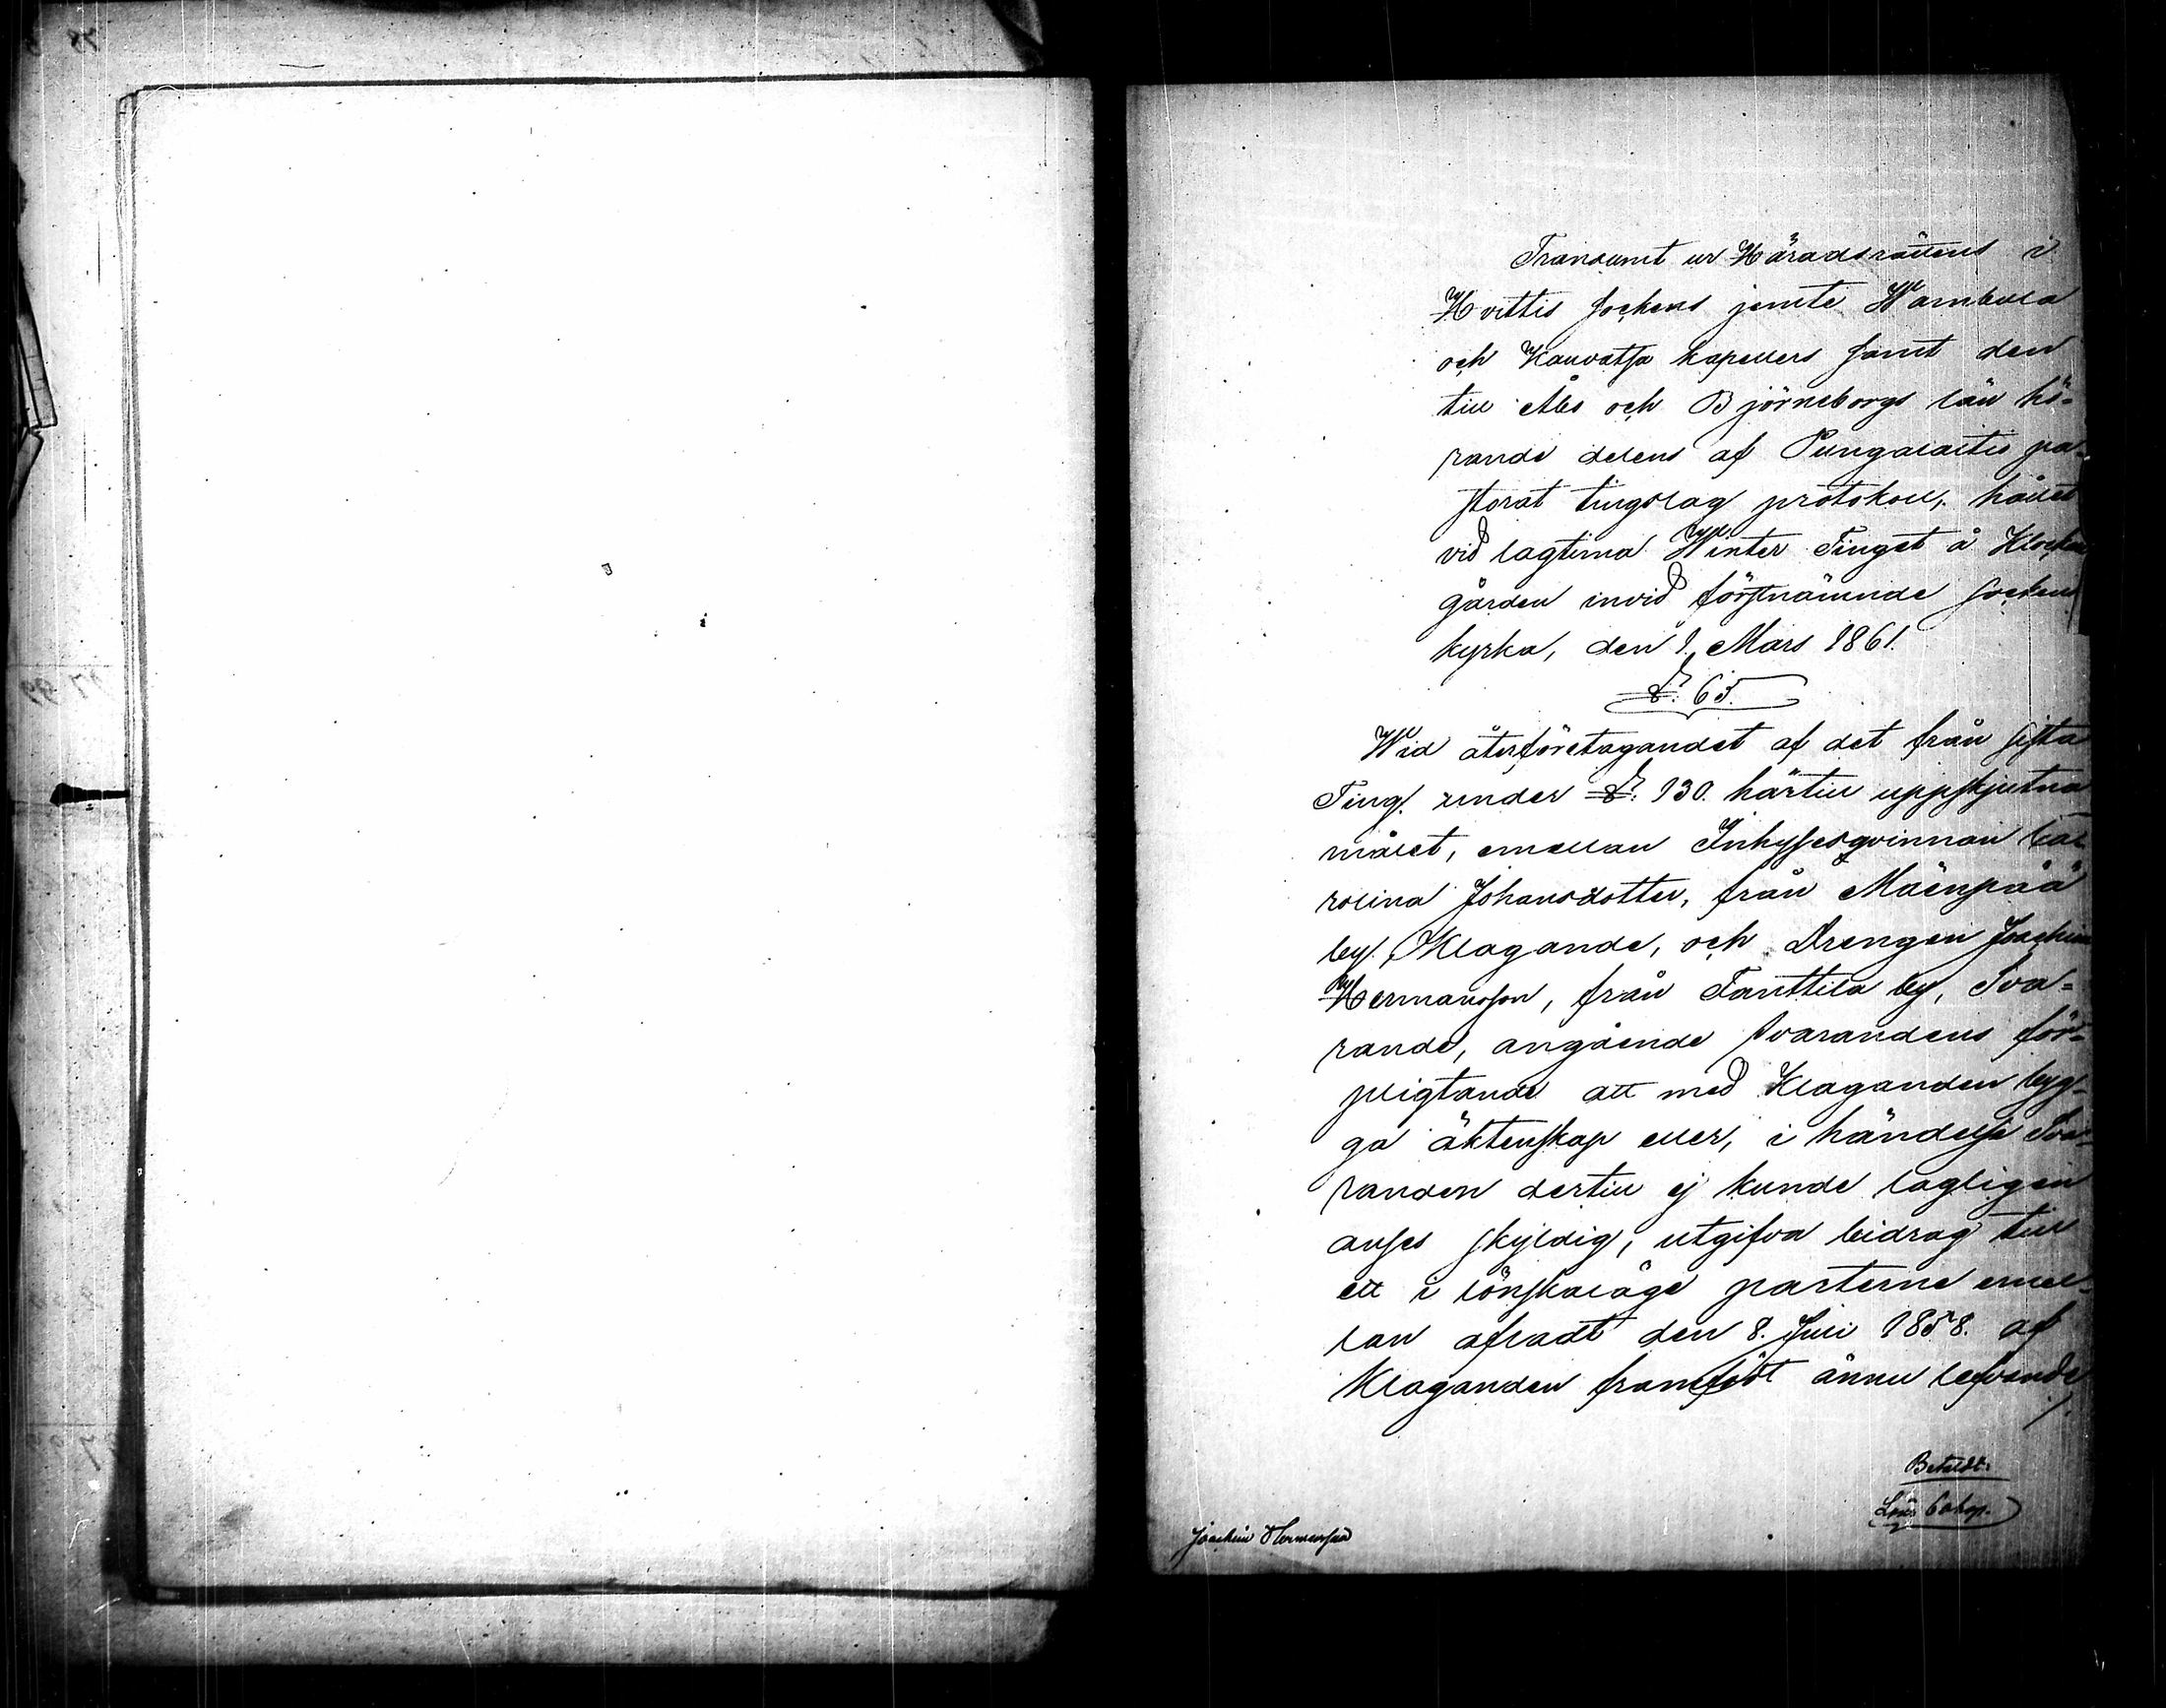 Transumt ur Häradsrättens i
Hvittis Sockens jemte Wambula
och Kauvatsa kapellers samt den
till Åbo och Björneborgs län hö-
rande delens af Pungalaitis pa-
storat tingslag protokoll, hållet
vid lagtima Winter Tinget å Klockar
gården invid förstnämnde Sockens
kyrka, den 1. Mars 1861.
§. 65.
Wid återföretagandet af det från sista
Ting under §. 130. härtill uppskjutna
målet, emellan Inhysesqvinnan Ca-
rolina Johansdotter, från Mäenpää
by, Klagande, och Drengen Joachim
Hermansson, från Tanttila by, Sva-
rande, angående svarandens för-
pligtande att med Klaganden byg-
ga äktenskap eller, i händelse Sva-
randen dertill ej kunde lagligen
anses skyldig, utgifva bidrag till
ett i lönskaläge parterne emel-
lan afladt den 8. Juli 1858. af
Klaganden framfödt ännu lefvande
Betaldt.
60 kop.
Joachim Hermansson